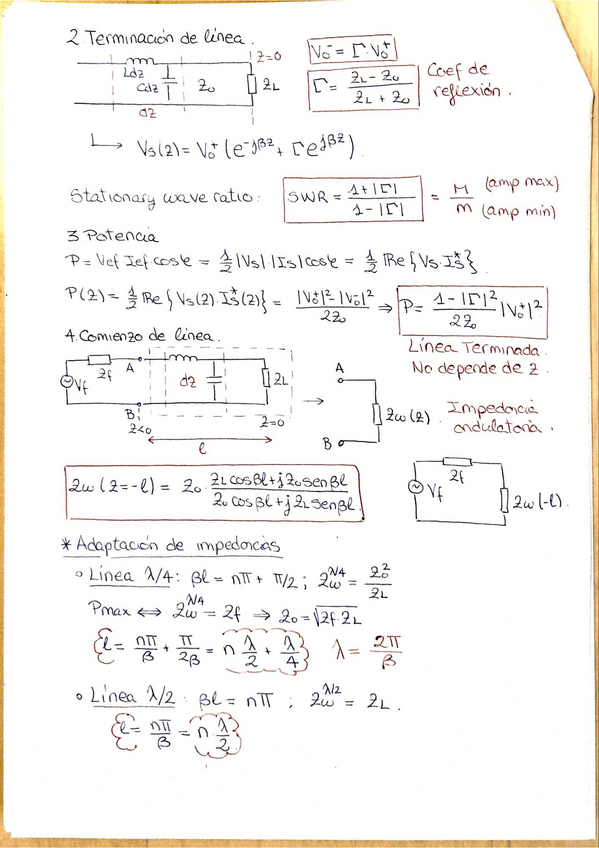 2 Terminación de línea.
Ldz
Cdz
Z₀
z=0
ZL
dz
V₀⁻ = Γ·V₀⁺
Γ = (ZL - Z₀) / (ZL + Z₀)
Coef de reflexión.
↳ Vs(z) = V₀⁺ (e^-jβz + Γe^jβz)
Stationary wave ratio: SWR = (1+|Γ|) / (1-|Γ|) = M/m (amp max) (amp min)
3 Potencia
P = Vef Ief cosφ = 1/2 |Vs|·|Is| cosφ = 1/2 Re{Vs·Is*}
P(z) = 1/2 Re{Vs(z)·Is*(z)} = (|V₀⁺|² - |V₀⁻|²) / 2Z₀ ⇒ P = (1-|Γ|²) / 2Z₀ |V₀⁺|²
4. Comienzo de línea.
Línea Terminada.
No depende de z.
Vf
Zf
A
B
dz
ZL
z<0
z=0
l
→
A
B
Zω(z)
Impedancia ondulatoria.
Zω(z=-l) = Z₀ · (ZL cosβl + jZ₀ senβl) / (Z₀ cosβl + jZL senβl)
Zf
Vf
Zω(-l).
* Adaptación de impedancias
∘ Línea λ/4: βl = nπ + π/2 ; Zω^λ/4 = Z₀²/ZL
Pmax ⟺ Zω^λ/4 = Zf ⇒ Z₀ = √(Zf·ZL)
l = nπ/β + π/2β = n λ/2 + λ/4
λ = 2π/β
∘ Línea λ/2: βl = nπ ; Zω^λ/2 = ZL.
l = nπ/β = n·λ/2